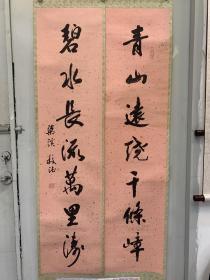 青山遠繞千條嶂
碧水長流萬里濤